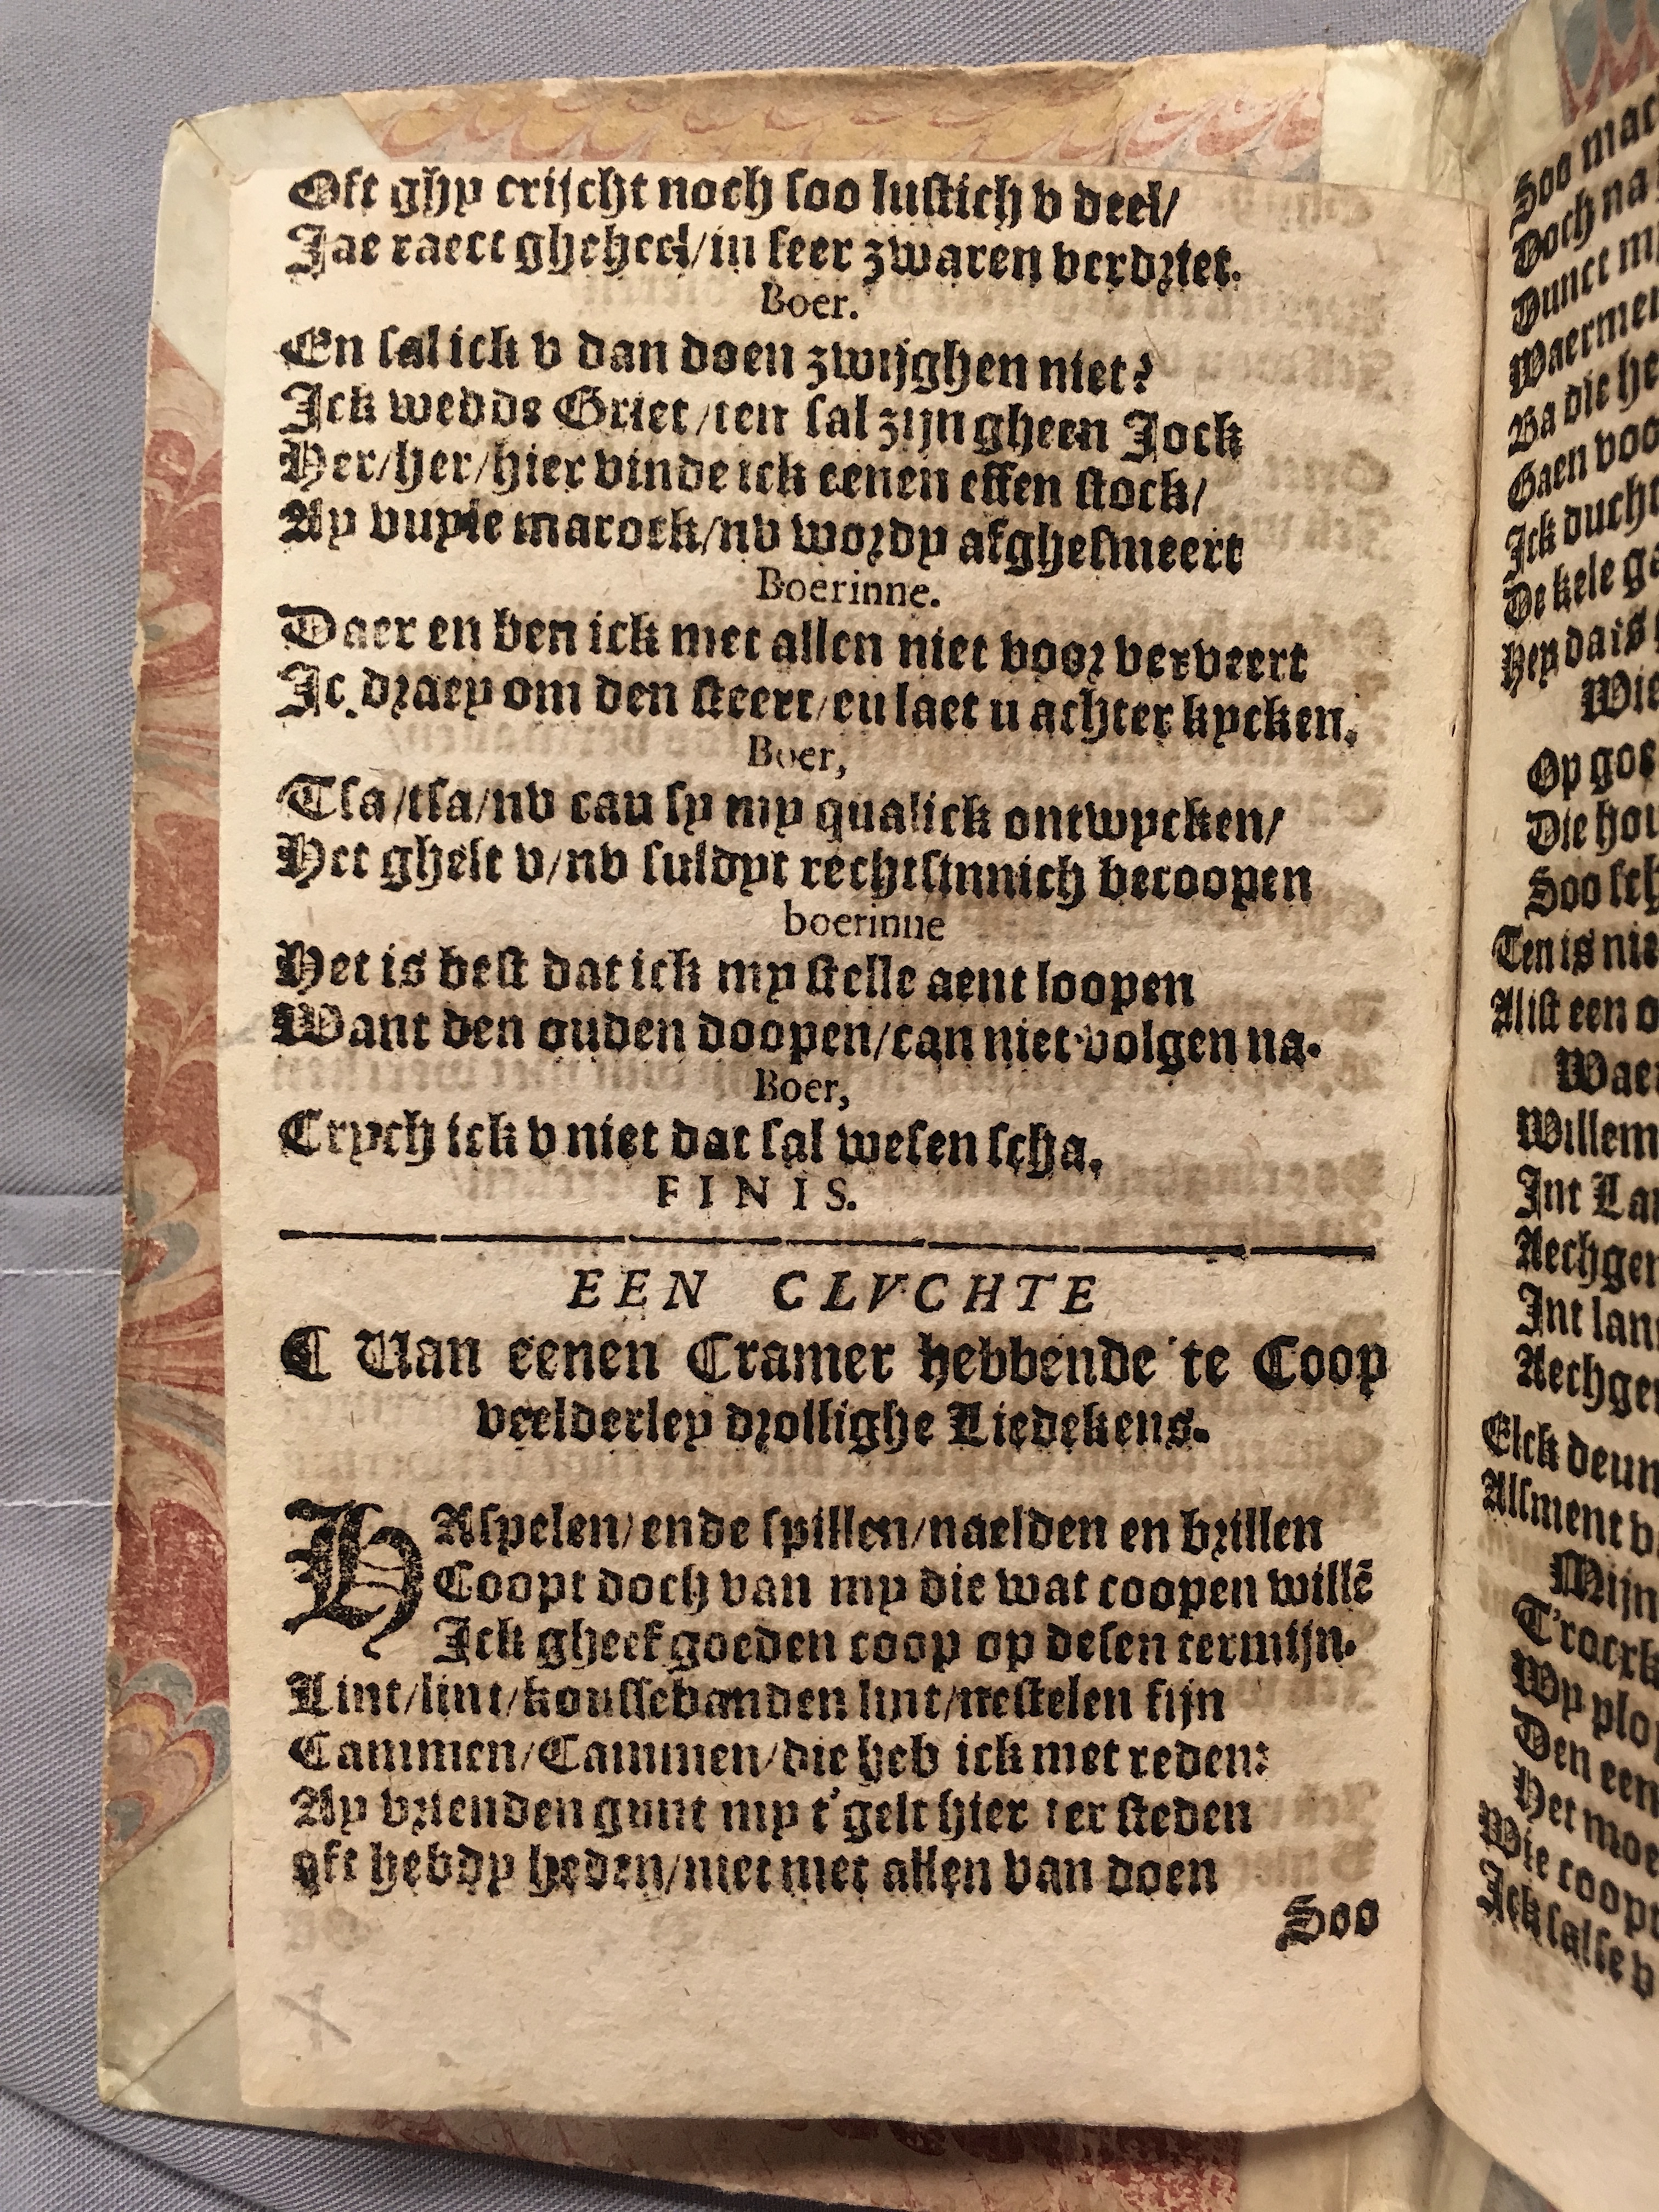 Oft ghy crijcht noch soo lustich v deel/
Jae raect gheheel/in seer zwaren verdriet.
Boer.
En sal ick v dan doen zwijghen niet?
Jck wedde Griet/ten sal zijn gheen Jock
Her/her/hier vinde ick eenen effen stock/
Ay vuyle marock/nv wordy afghesmeert
Boerinne.
Daer en ben ick met allen niet voor verveert
Jc draey om den steert/en laet u achter kycken.
Boer,
Tsa/tsa/nv can sy my qualick ontwycken/
Het ghelt v/nv suldyt rechtsinnich becoopen
boerinne
Het is best dat ick my stelle aent loopen
Want den ouden doopen/can niet volgen na.
Boer,
Crych ick v niet dat sal wesen scha.
FINIS.
EEN CLVCHTE
Van eenen Cramer hebbende te Coop
veelderley drollighe Liedekens.
HAspelen/ende spillen/naelden en brillen
Coopt doch van my die wat coopen willē
Jck gheef goeden coop op desen termijn.
Lint/lint/koussebanden lint/nestelen fijn
Cammen/Cammen/die heb ick met reden:
Ay vrienden gunt my t'gelt hier ter steden
oft hebdy heden/niet met allen van doen
Soo
Soo
Doch na
Dunct
Waermen
Ba die
Gaen
Jck
De kele
Hey da is
Op
Die
Soo
Ten is
Alist een
Willem
Jnt
Jnt
Elck
Alsment
Mijn
Wy
Den een
Het
Wie